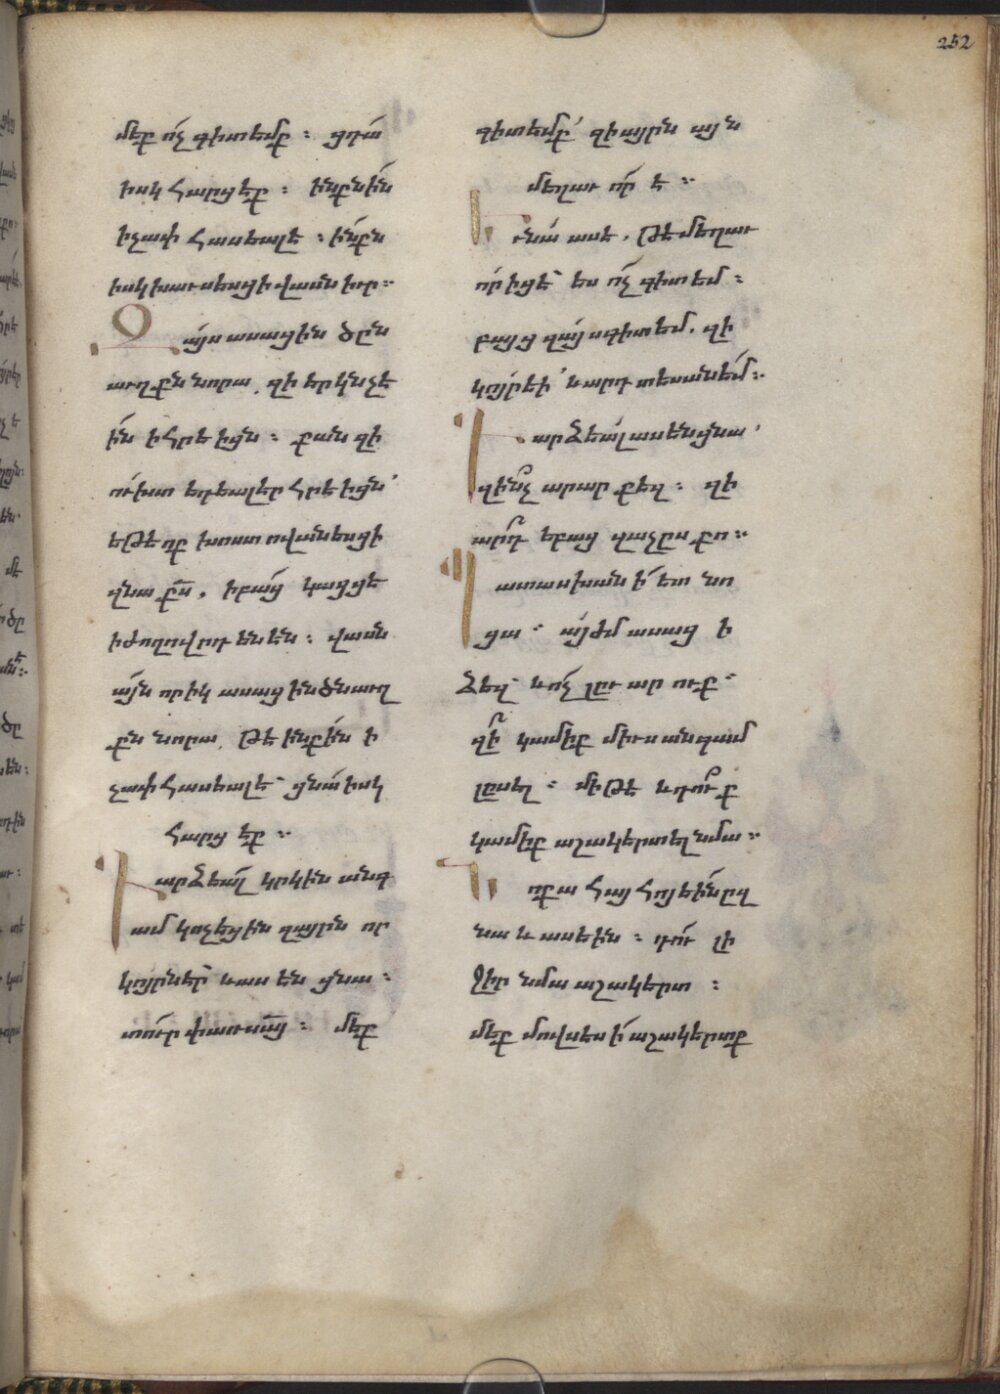 252
մեք ո՛չ գիտեմք ։ ցդա՛
իսկ հարցէք ։ ինքնի՛ն
ի չափ հասեալ է ։ ի՛նքն
իսկ խաւսեսցի վասն իւր ։
Զայս ասացին ծըն
աւղքն նորա, զի երկնչէ
ի՛ն ի հրէիցն ։ քանզի
ուխտ եդեալ էր հրէիցն՝
եթե ոք խոստովանեսցի
զնա քս̅, ի բա՛ց կացցէ
ի ժողովրդենէն ։ վասն
այն որիկ ասացին ծնաւղ
քն նորա, թէ ինքի՛ն ի
չափ հասեալ է՝ ցնա՛ իսկ
հարց եք ։
Դարձեալ կրկին անգ
ամ կոչեցին զայրն որ
կոյրն էր՝ և ասեն ցնա ։
տո՛ւր փառս ա՟յ ։ մեք
գիտեմք՝ զի այրն այն
մեղաւոր է ։
Եւ նա ասէ, թե մեղաւ
որ իցէ՝ ես ո՛չ գիտեմ ։
բայց զայս գիտեմ, զի
կոյր էի՝ և արդ տեսանեմ ։
Դարձեալ ասեն ցնա՝
զի՞նչ արար քեզ ։ զի
ա՞րդ եբաց զաչըս քո ։
Պատասխանի ետ նո
ցա ։ այժմ ասացի
ձեզ՝ և ո՛չ լըւարուք ։
զի՞ կամիք միւսանգամ
լըսել ։ միթե և դո՞ւք
կամիք աշակերտել նմա ։
Նոքա հայհոյեի՛ն ըզ
նա և ասեին ։ դու լի
ջիր նմա աշակերտ ։
մեք մովսեսի՛ աշակերտք